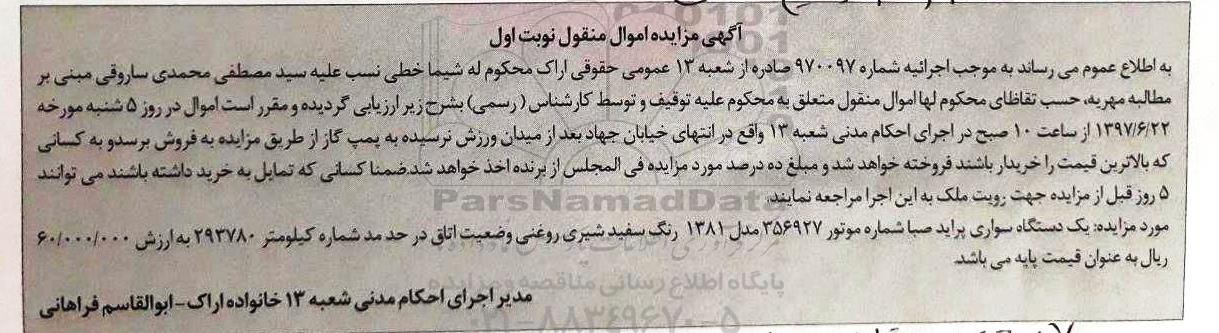 آگهی مزایده اموال منقول نوبت اول
به اطلاع عموم می رساند به موجب اجرائیه شماره ۹۷۰۰۹۷ صادره از شعبه ۱۳ عمومی حقوقی اراک محکوم له شیما خطی نسب علیه سید مصطفی محمدی ساروقی مبنی بر
مطالبه مهریه، حسب تقاظای محکوم لها اموال منقول متعلق به محکوم علیه توقیف و توسط کارشناس (رسمی) بشرح زیر ارزیابی گردیده و مقرر است اموال در روز ۵ شنبه مورخه
۱۳۹۷/۶/۲۲ از ساعت ۱۰ صبح در اجرای احکام مدنی شعبه ۱۳ واقع در انتهای خیابان جهاد بعد از میدان ورزش نرسیده به پمپ گاز از طریق مزایده به فروش برسدو به کسانی
که بالاترین قیمت را خریدار باشند فروخته خواهد شد و مبلغ ده درصد مورد مزایده فی المجلس از برنده اخذ خواهد شد.ضمنا کسانی که تمایل به خرید داشته باشند می توانند
۵ روز قبل از مزایده جهت رویت ملک به این اجرا مراجعه نمایند.
مورد مزایده: یک دستگاه سواری پراید صبا شماره موتور ۳۵۶۹۲۷ مدل ۱۳۸۱ رنگ سفید شیری روغنی وضعیت اتاق در حد مد شماره کیلومتر ۲۹۳۷۸۰ به ارزش ۶۰/۰۰۰/۰۰۰
ریال به عنوان قیمت پایه می باشد.
مدیر اجرای احکام مدنی شعبه ۱۳ خانواده اراک - ابوالقاسم فراهانی
ParsNamadData
پایگاه اطلاع رسانی مناقصه و مزایده
۰۲۱-۸۸۳۴۹۶۷۰-۵